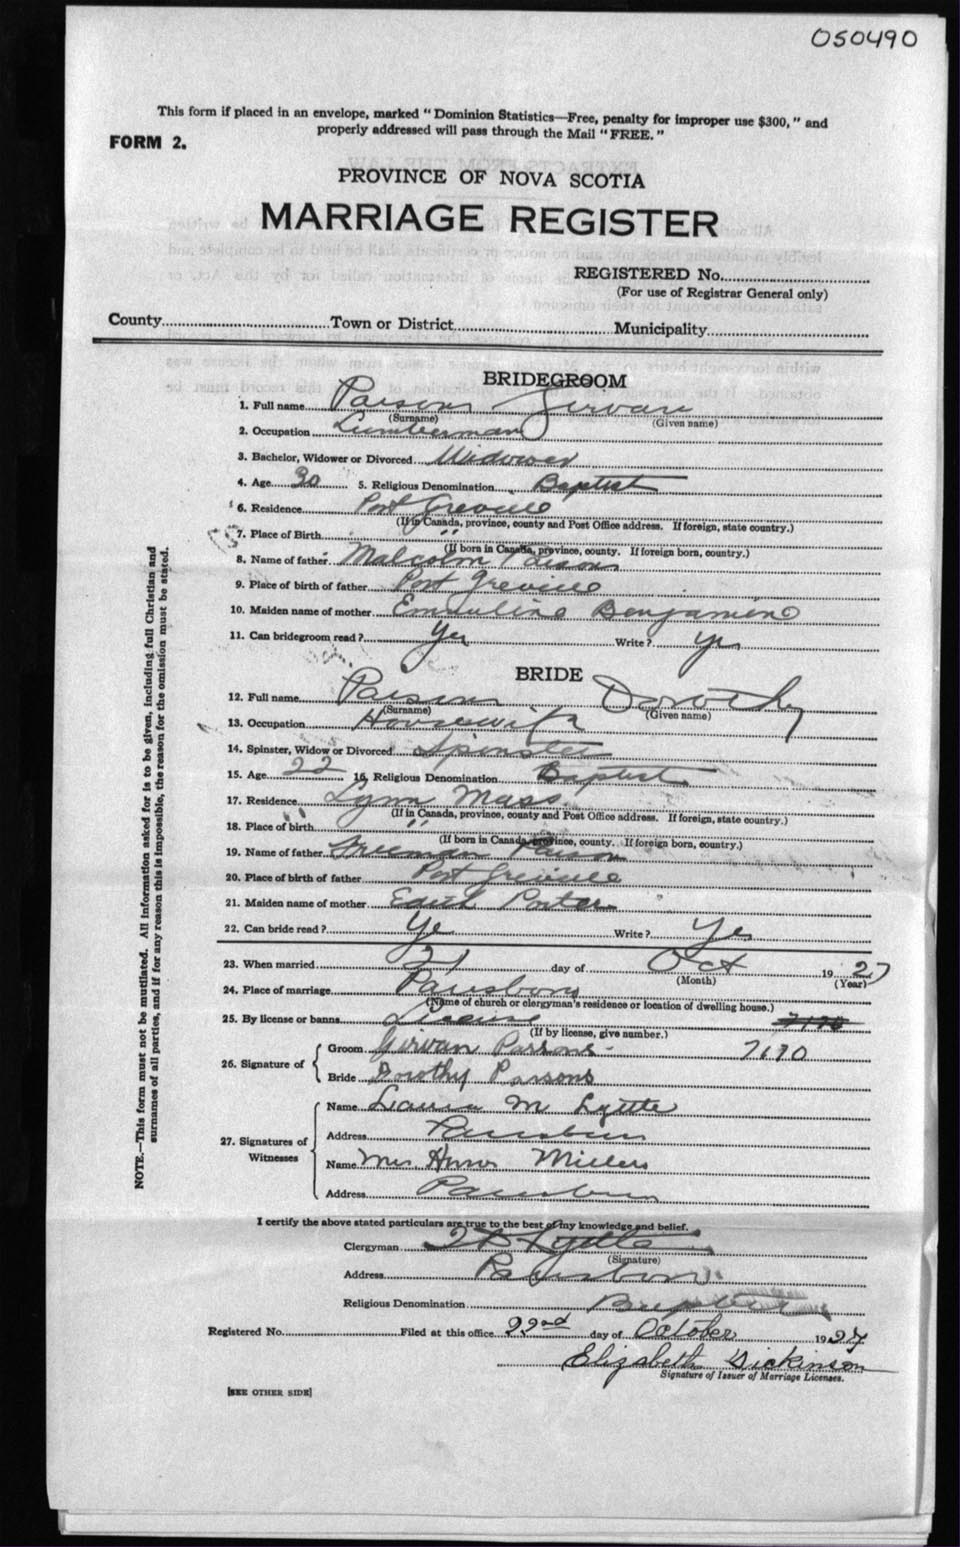 050490
This form if placed in an envelope, marked "Dominion Statistics—Free, penalty for improper use $300," and
properly addressed will pass through the Mail "FREE."
FORM 2.
PROVINCE OF NOVA SCOTIA
MARRIAGE REGISTER
REGISTERED No.
(For use of Registrar General only)
County Town or District Municipality
BRIDEGROOM
1. Full name Parsons Girvan
(Surname) (Given name)
2. Occupation Lumberman
3. Bachelor, Widower or Divorced Widower
4. Age 30 5. Religious Denomination Baptist
6. Residence Port Greville
(If in Canada, province, county and Post Office address. If foreign, state country.)
7. Place of Birth " "
(If born in Canada, province, county. If foreign born, country.)
8. Name of father Malcolm Parsons
9. Place of birth of father Port Greville
10. Maiden name of mother Emmuline Benjamin
11. Can bridegroom read? Yes Write? Yes
BRIDE
12. Full name Parsons Dorothy
(Surname) (Given name)
13. Occupation Housewife
14. Spinster, Widow or Divorced Spinster
15. Age 22 16. Religious Denomination Baptist
17. Residence Lynn Mass.
(If in Canada, province, county and Post Office address. If foreign, state country.)
18. Place of birth " " "
(If born in Canada, province, county. If foreign born, country.)
19. Name of father Freeman Parsons
20. Place of birth of father Port Greville
21. Maiden name of mother Edith Porter
22. Can bride read? Ye Write? Yes
23. When married 21 day of Oct 1927
(Month) (Year)
24. Place of marriage Parrsboro
(Name of church or clergyman's residence or location of dwelling house.)
25. By license or banns License
(If by license, give number.)
26. Signature of Groom Girvan Parsons 7190
Bride Dorothy Parsons
27. Signatures of Witnesses
Name Laura M Lyttle
Address Parrsboro
Name Mrs. Millers
Address Parrsboro
I certify the above stated particulars are true to the best of my knowledge and belief.
Clergyman Lyttle
(Signature)
Address Parrsboro
Religious Denomination Baptist
Registered No. Filed at this office 22nd day of October 1927
Elizabeth Dickinson
Signature of Issuer of Marriage Licenses.
[SEE OTHER SIDE]
NOTE.—This form must not be mutilated. All information asked for is to be given, including full Christian and
surnames of all parties, and if for any reason this is impossible, the reason for the omission must be stated.